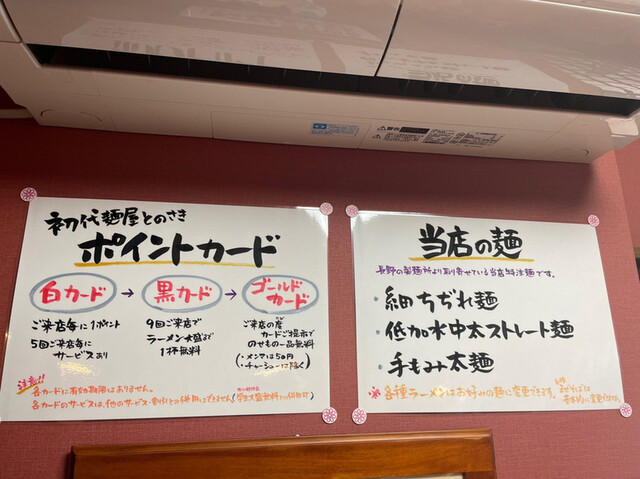 初代麺屋とのさき
ポイントカード
白カード → 黒カード → ゴールドカード
ご来店毎に1ポイント
5回ご来店毎に
サービスあり
9回ご来店で
ラーメン大盛まで
1杯無料
ご来店の度
カードご提示で
のせもの一品無料
(・メンマは50円
・チャーシューは除く)
注意!!
各カードに有効期限はありません。
各カードのサービスは、他のサービス・割引との併用はできません
当店の麺
長野の製麺所より取り寄せている当店特注麺です。
・細ちぢれ麺
・低加水中太ストレート麺
・手もみ太麺
※各種ラーメンはお好みの麺に変更できます。